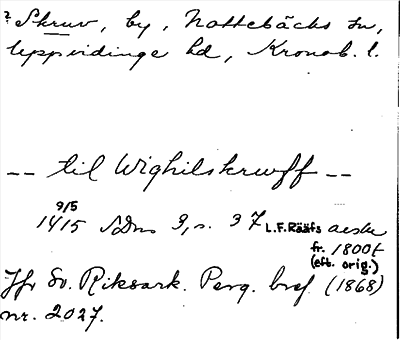 ? Skruv, by, Nottebäcks sn,
Uppvidinge hd, Kronob. l.
-- til Wighilskrwff --
9/5
1415 SDns 3, s. 37 L.F. Rääfs avskr
fr. 1800t
(eft. orig.)
Jfr Sv. Riksark. Perg. bref (1868)
nr. 2027.